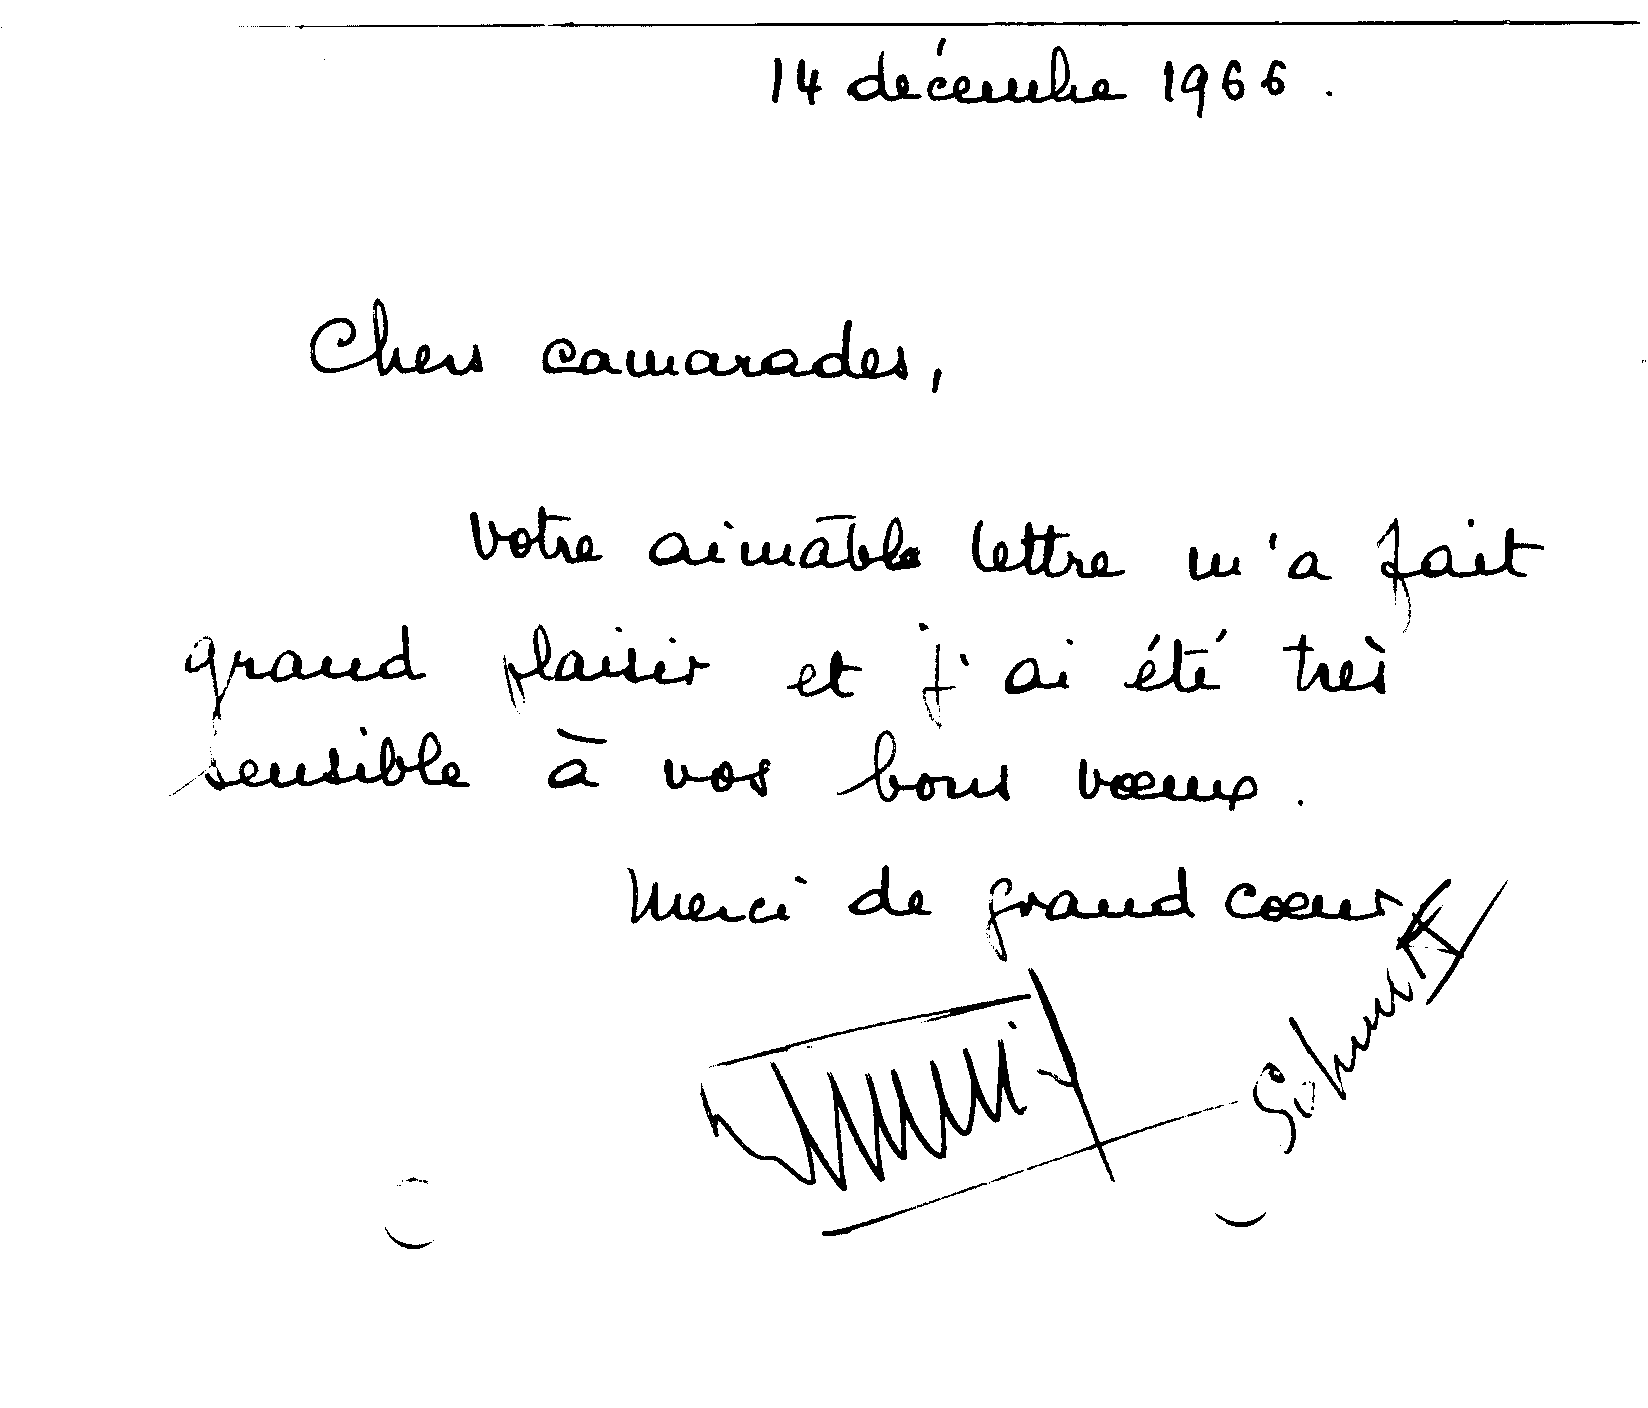 14 décembre 1966.
Chers camarades,
votre aimable lettre m'a fait
grand plaisir et j'ai été très
sensible à vos bons vœux.
Merci de grand cœur